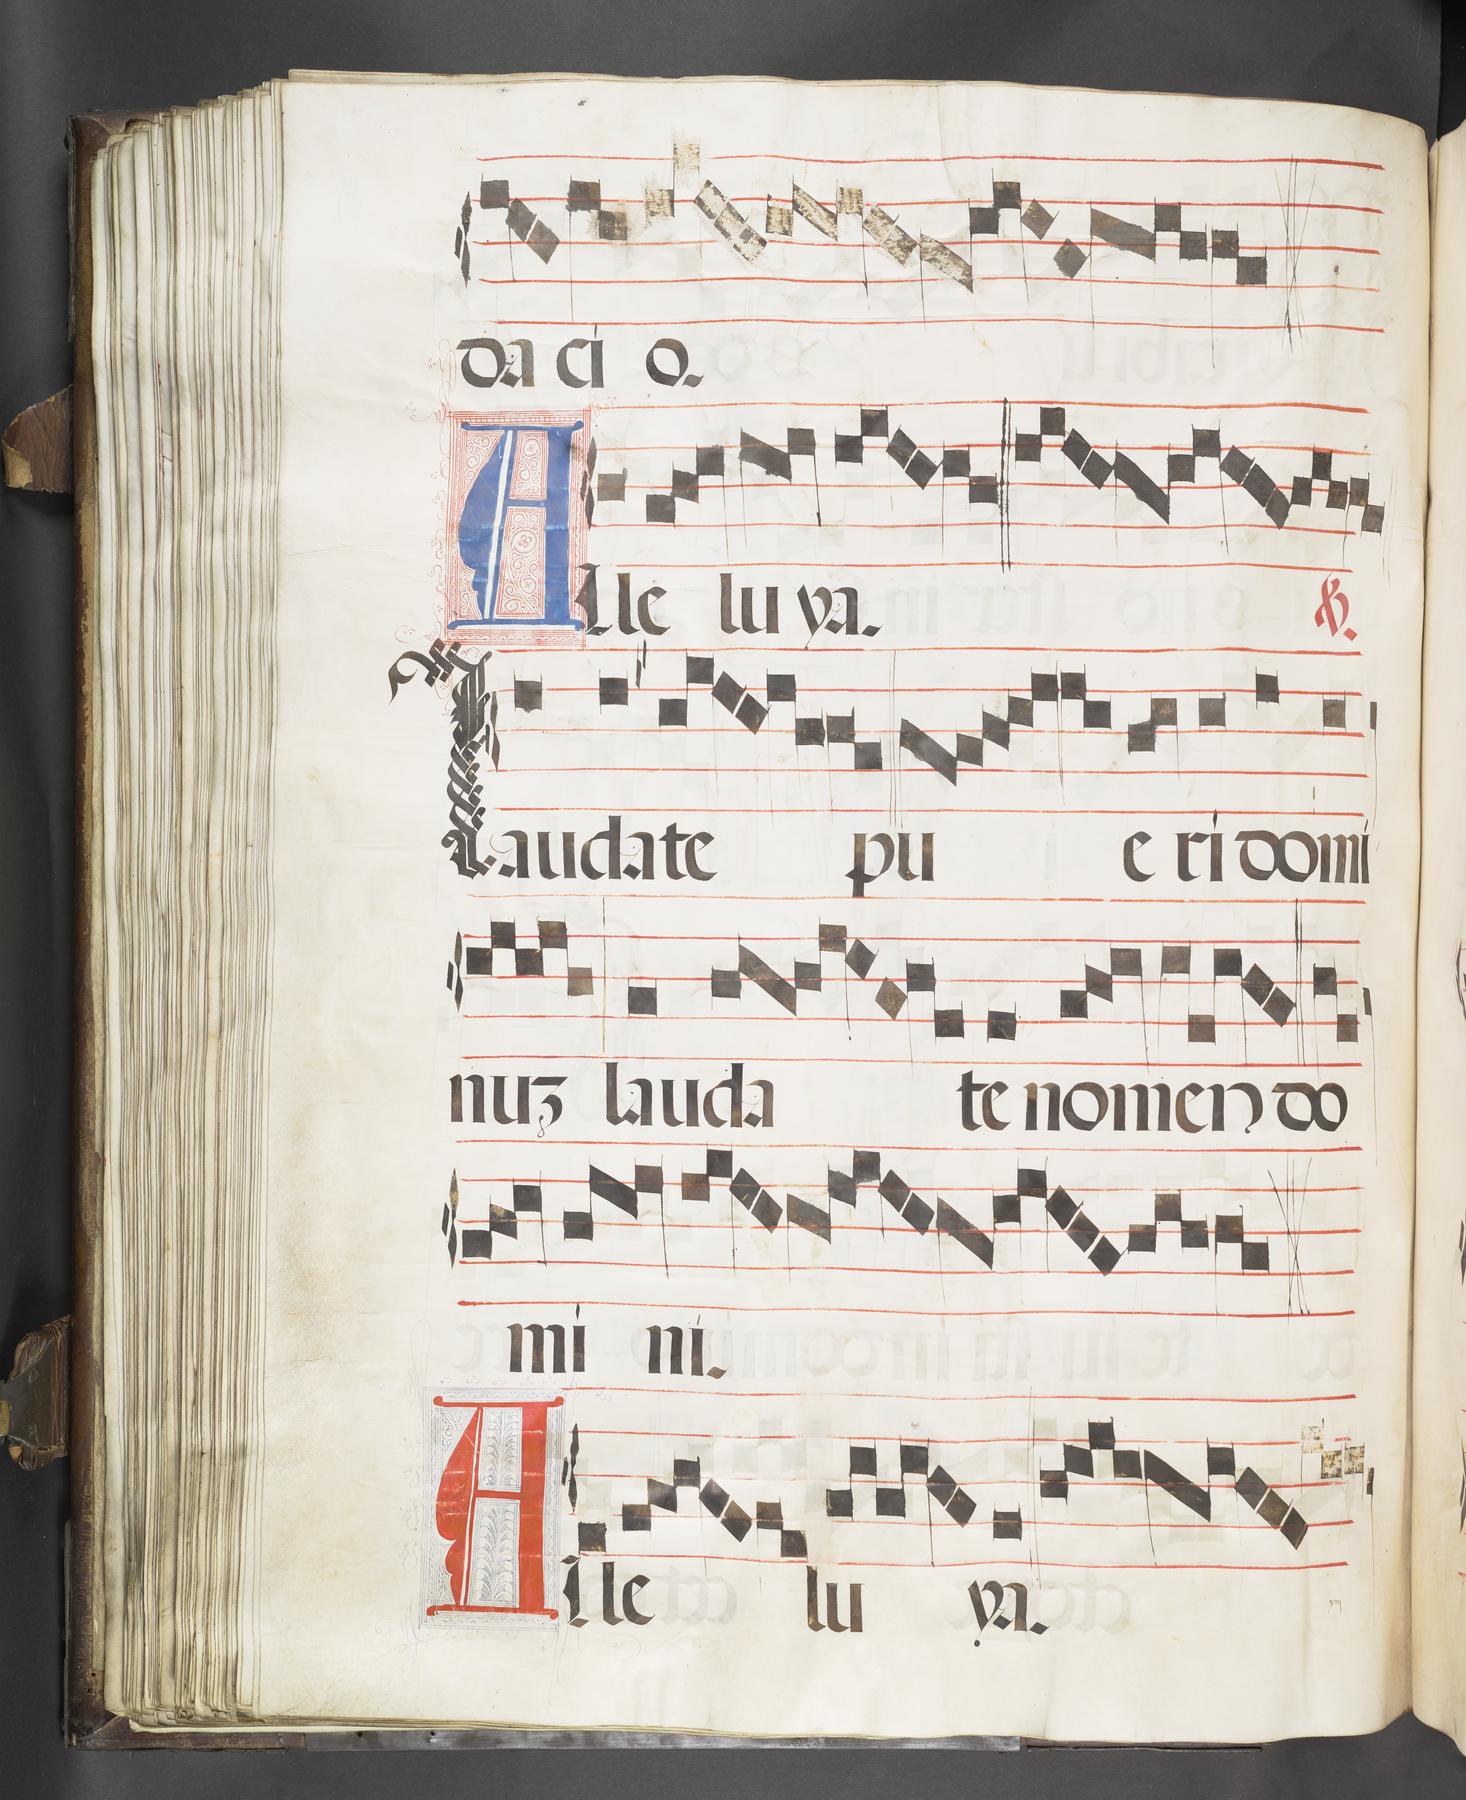 da ci o.
Alle lu ya. ℣.
Laudate pu e ri domi
nuʒ lauda te nomen do
mi ni.
Alle lu ya.